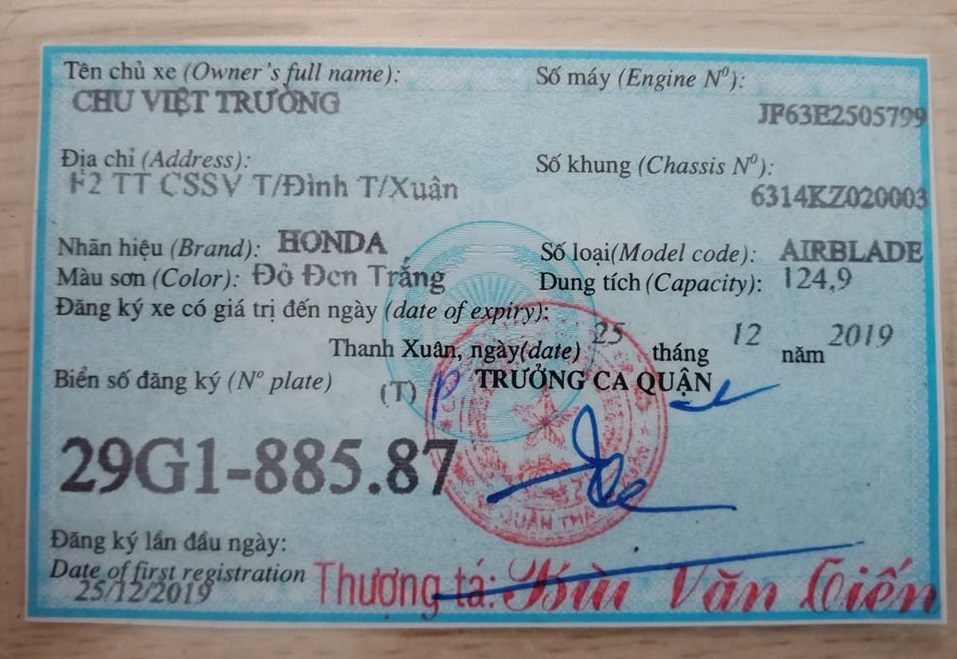 Tên chủ xe (Owner's full name):
CHU VIỆT TRƯỜNG
Số máy (Engine Nº):
JF63E2505799
Địa chỉ (Address):
F2 TT CSSV T/Đình T/Xuân
Số khung (Chassis Nº):
6314KZ020003
Nhãn hiệu (Brand): HONDA
Số loại(Model code): AIRBLADE
Màu sơn (Color): Đỏ Đen Trắng
Dung tích (Capacity): 124,9
Đăng ký xe có giá trị đến ngày (date of expiry):
Thanh Xuân, ngày(date) 25 tháng 12 năm 2019
Biển số đăng ký (Nº plate) (T) P TRƯỞNG CA QUẬN
29G1-885.87
QUẬN THA
Đăng ký lần đầu ngày:
Date of first registration
25/12/2019
Thượng tá: Bùi Văn Tiến